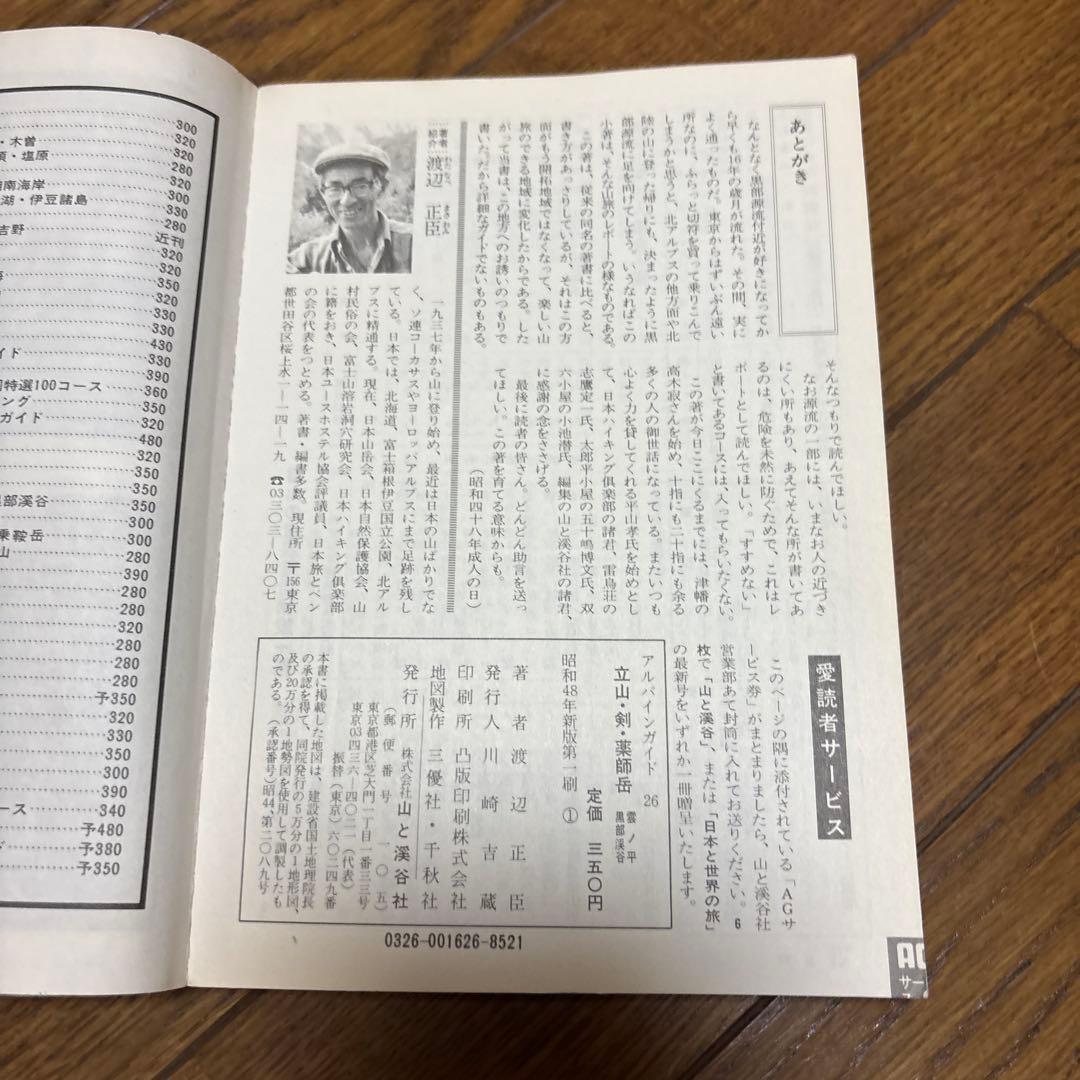 あとがき
なんとなく黒部源流付近が好きになってか
ら早くも16年の歳月が流れた。その間、実に
よく通ったものだ。東京からはずいぶん遠い
所なのに、ふらっと切符を買って乗りこんで
しまうかと思うと、北アルプスの他方面や北
陸の山に登った帰りにも、決まったように黒
部源流に足を向けてしまう。いうなればこの
小著は、そんな山旅のレポートの様なものである。
この著は、従来の同名の著書に比べると、
書き方があっさりしているが、それはこの方
面がもう開拓地域ではなくなって、楽しい山
旅のできる地域に変化したからである。した
がって当書は、この地方へのお誘いのつもりで
書いた。だから詳細なガイドでないものもある。
そんなつもりで読んでほしい。
なお源流の一部には、いまなお人の近づき
にくい所もあり、あえてそんな所が書いてあ
るのは、危険を未然に防ぐためで、これはレ
ポートとして読んでほしい。「すすめない」
と書いてあるコースには、入ってもらいたくない。
この著が今日ここにくるまでには、津幡の
高木寂さんを始め、十指にも二十指にも余る
多くの人の御世話になっている。またいつも
心よく力を貸してくれる平山孝氏を始めとし
て、日本ハイキング倶楽部の諸君、雷鳥荘の
志鷹定一氏、太郎平小屋の五十嶋博文氏、双
六小屋の小池潜氏、編集の山と溪谷社の諸君、
に感謝の念をささげる。
最後に読者の皆さん。どんどん助言を送っ
てほしい。この著を育てる意味からも。
（昭和四十八年成人の日）
著者紹介 渡辺 正臣
わたなべ まさおみ
一九三七年から山に登り始め、最近は日本の山ばかりでな
く、ソ連コーカサスやヨーロッパアルプスにまで足跡を残し
ている。日本では、北海道、富士箱根伊豆国立公園、北アル
プスに精通する。現在、日本山岳会、日本自然保護協会、山
村民俗の会、富士山溶岩洞穴研究会、日本ハイキング倶楽部
に籍をおき、日本ユースホステル協会評議員、日本旅とペン
の会の代表をつとめる。著書・編書多数。現住所 〒156東京
都世田谷区桜上水一—一四—一九 ☎03三〇三—八四〇七
愛読者サービス
このページの隅に添付されている「AGサ
ービス券」がまとまりましたら、山と溪谷社
営業部あて封筒に入れてお送りください。6
枚で「山と溪谷」、または「日本と世界の旅」
の最新号をいずれか一冊贈呈いたします。
アルパインガイド 26
立山・剣・薬師岳 雲ノ平 黒部溪谷
定価 三五〇円
昭和48年新版第一刷 ①
著者 渡辺正臣
発行人 川崎吉蔵
印刷所 凸版印刷株式会社
地図製作 三優社・千秋社
発行所 株式会社 山と溪谷社
（郵便番号 一〇五）
東京都港区芝大門一丁目一番三三号
東京03四三六—四〇二一（代表）
振替（東京）六〇二四九番
本書に掲載した地図は、建設省国土地理院長
の承認を得て、同院発行の5万分の1地形図、
及び20万分の1地勢図を使用して調製したも
のである。（承認番号）昭44、第二〇八九号
0326-001626-8521
AG
サー
300
・木曽 320
・塩原 320
280
南海岸 320
湖・伊豆諸島 300
330
吉野 280
近刊
320
350
320
330
330
430
イド 330
390
特選100コース 360
ング 350
ガイド 320
480
320
350
部溪谷 350
300
乗鞍岳 300
山 280
390
280
390
320
280
280
280
予350
320
330
350
300
390
ース 340
予480
ド 予380
予350